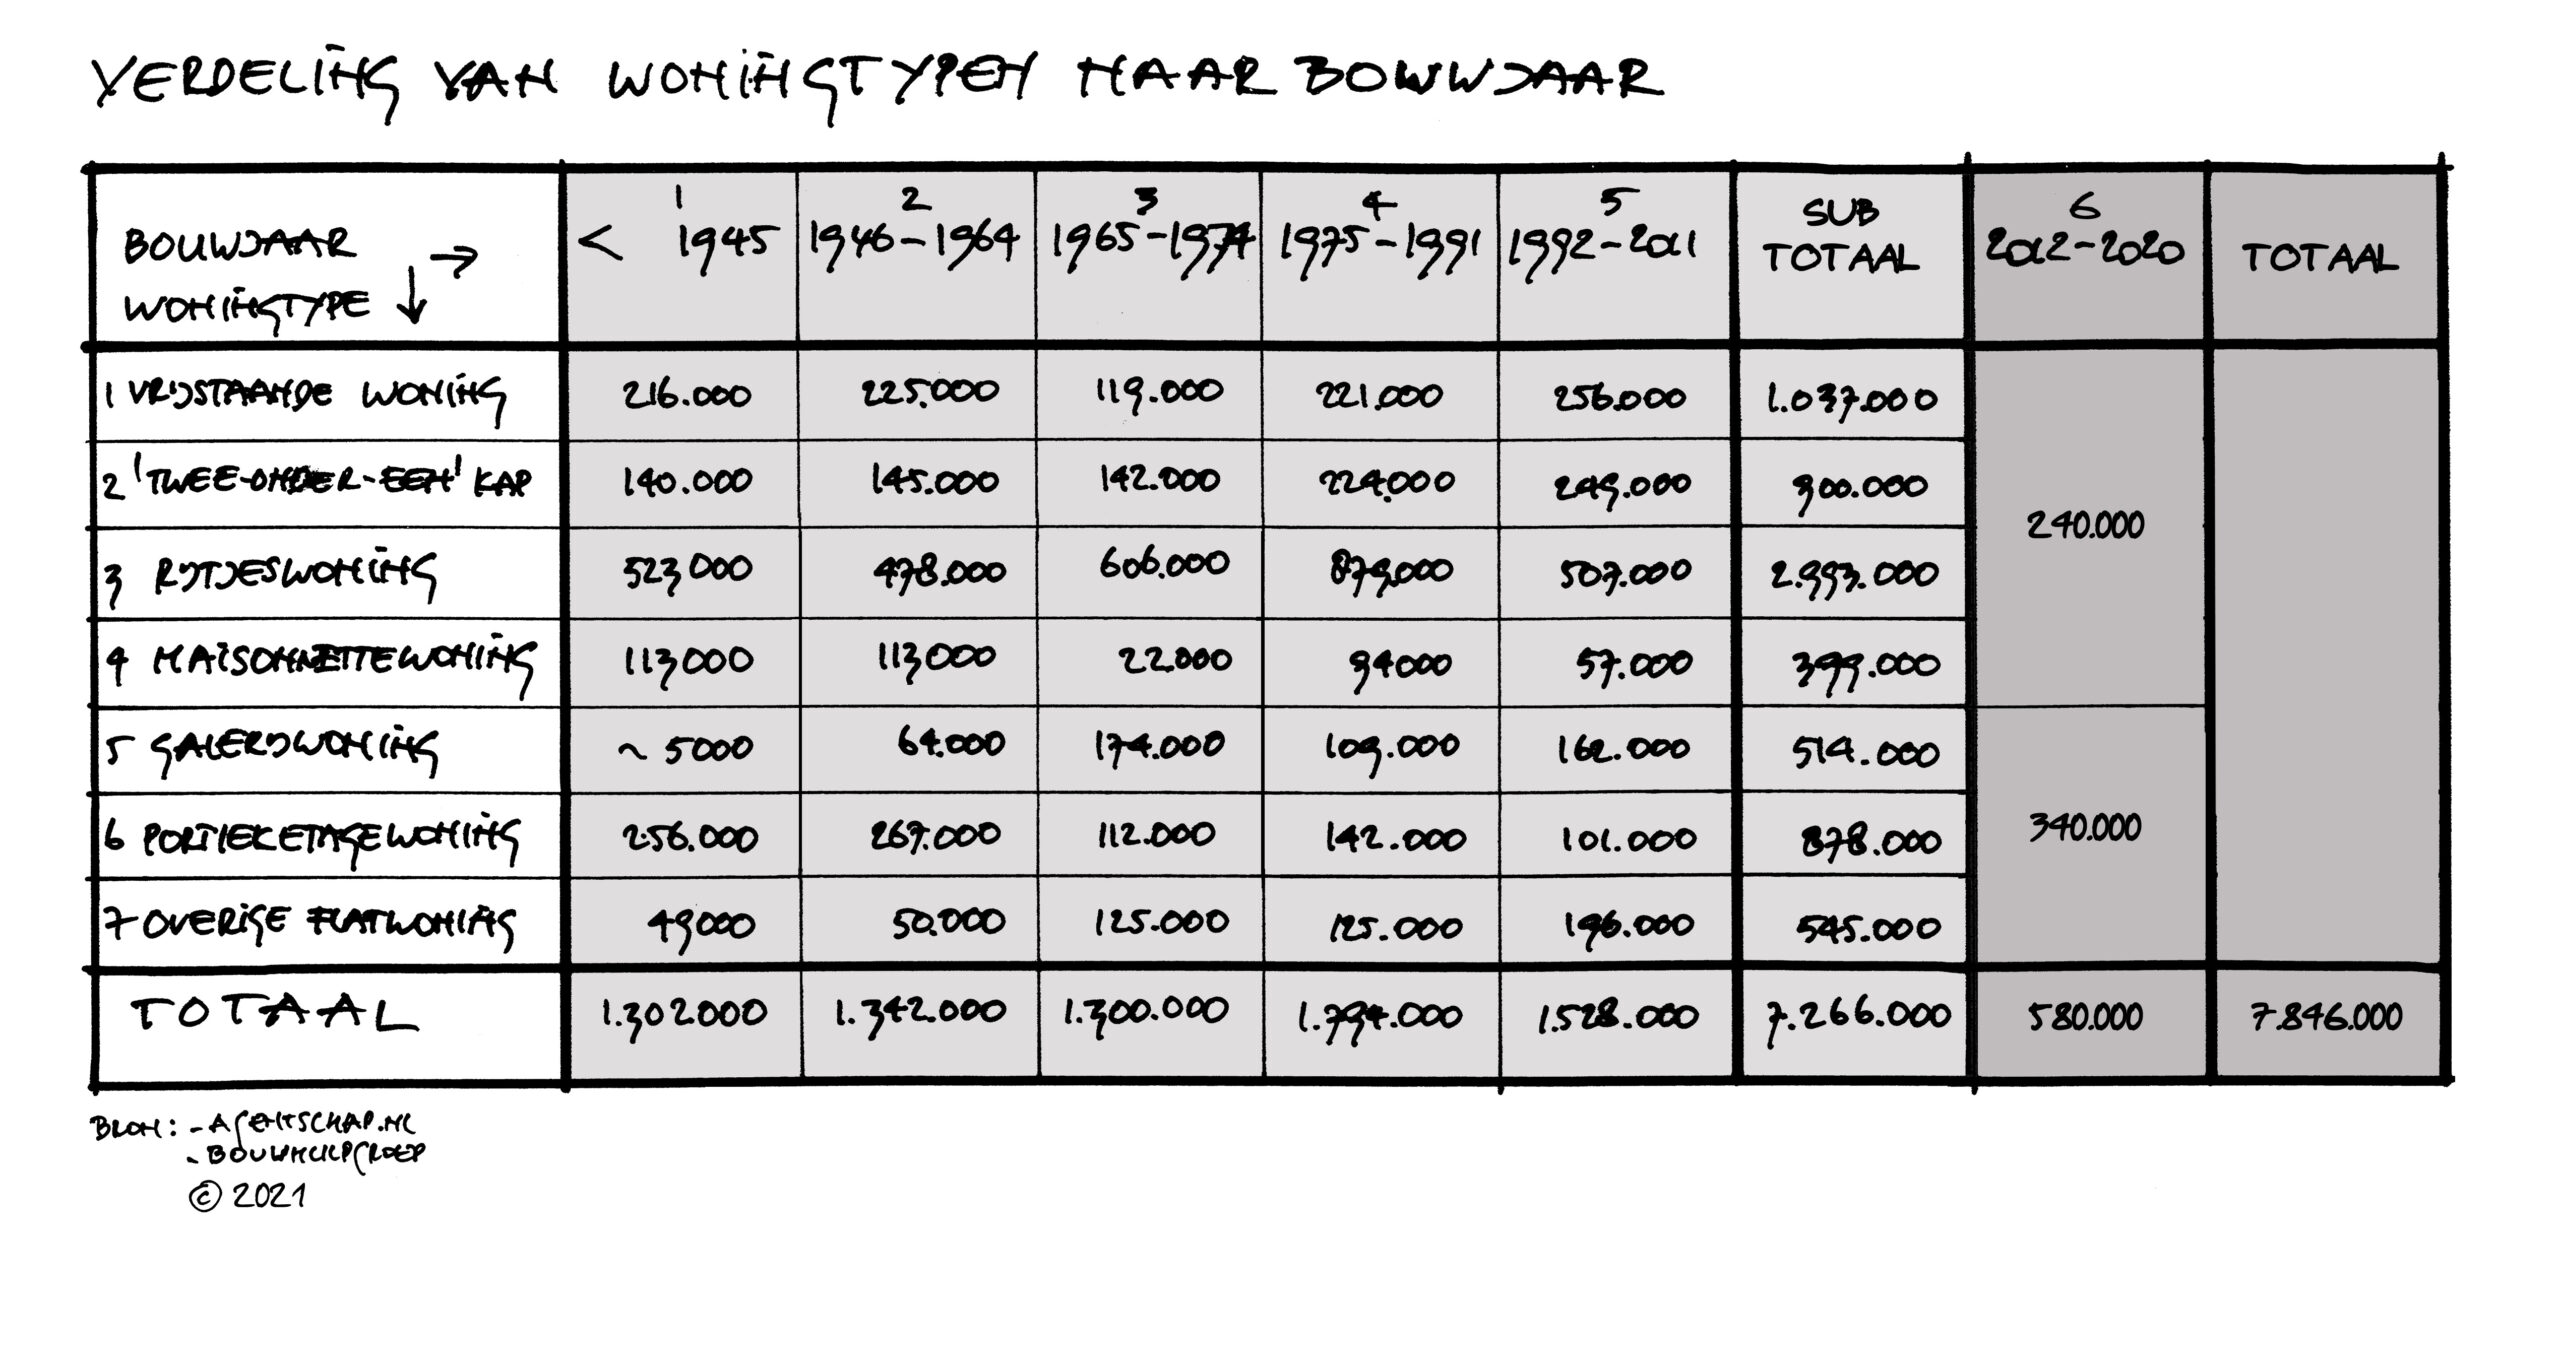 VERDELING VAN WONINGTYPEN NAAR BOUWJAAR
BOUWJAAR →
WONINGTYPE ↓
1 2 3 4 5 SUB 6
< 1945 1946-1964 1965-1974 1975-1991 1992-2011 TOTAAL 2012-2020 TOTAAL
1 VRIJSTAANDE WONING 216.000 225.000 119.000 221.000 256.000 1.037.000
2 'TWEE-ONDER-EEN' KAP 140.000 145.000 142.000 224.000 249.000 900.000
240.000
3 RIJTJESWONING 523000 478.000 606.000 879.000 507.000 2.993.000
4 MAISONNETTEWONING 113000 113000 22.000 94000 57.000 399.000
5 GALERIJWONING ~ 5000 64.000 174.000 109.000 162.000 514.000
6 PORTIEKETAGEWONING 256.000 267.000 112.000 142.000 101.000 878.000 340.000
7 OVERIGE FLATWONING 49000 50.000 125.000 125.000 196.000 545.000
TOTAAL 1.302000 1.342.000 1.300.000 1.794.000 1.528.000 7.266.000 580.000 7.846.000
BRON: - AGENTSCHAP.NL
- BOUWHULPGROEP
© 2021